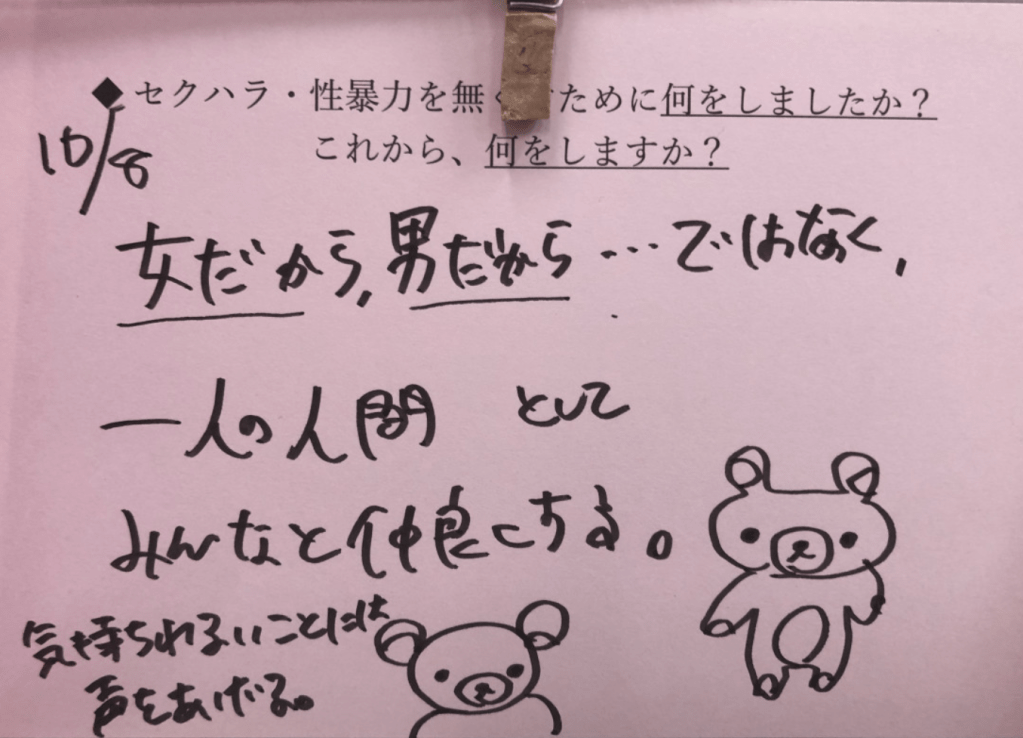 ◆ セクハラ・性暴力を無く ために何をしましたか？
これから、何をしますか？
10/8
女だから,男だから…ではなく,
一人の人間 として
みんなと仲良くする。
気持ちわるいことには
声をあげる。